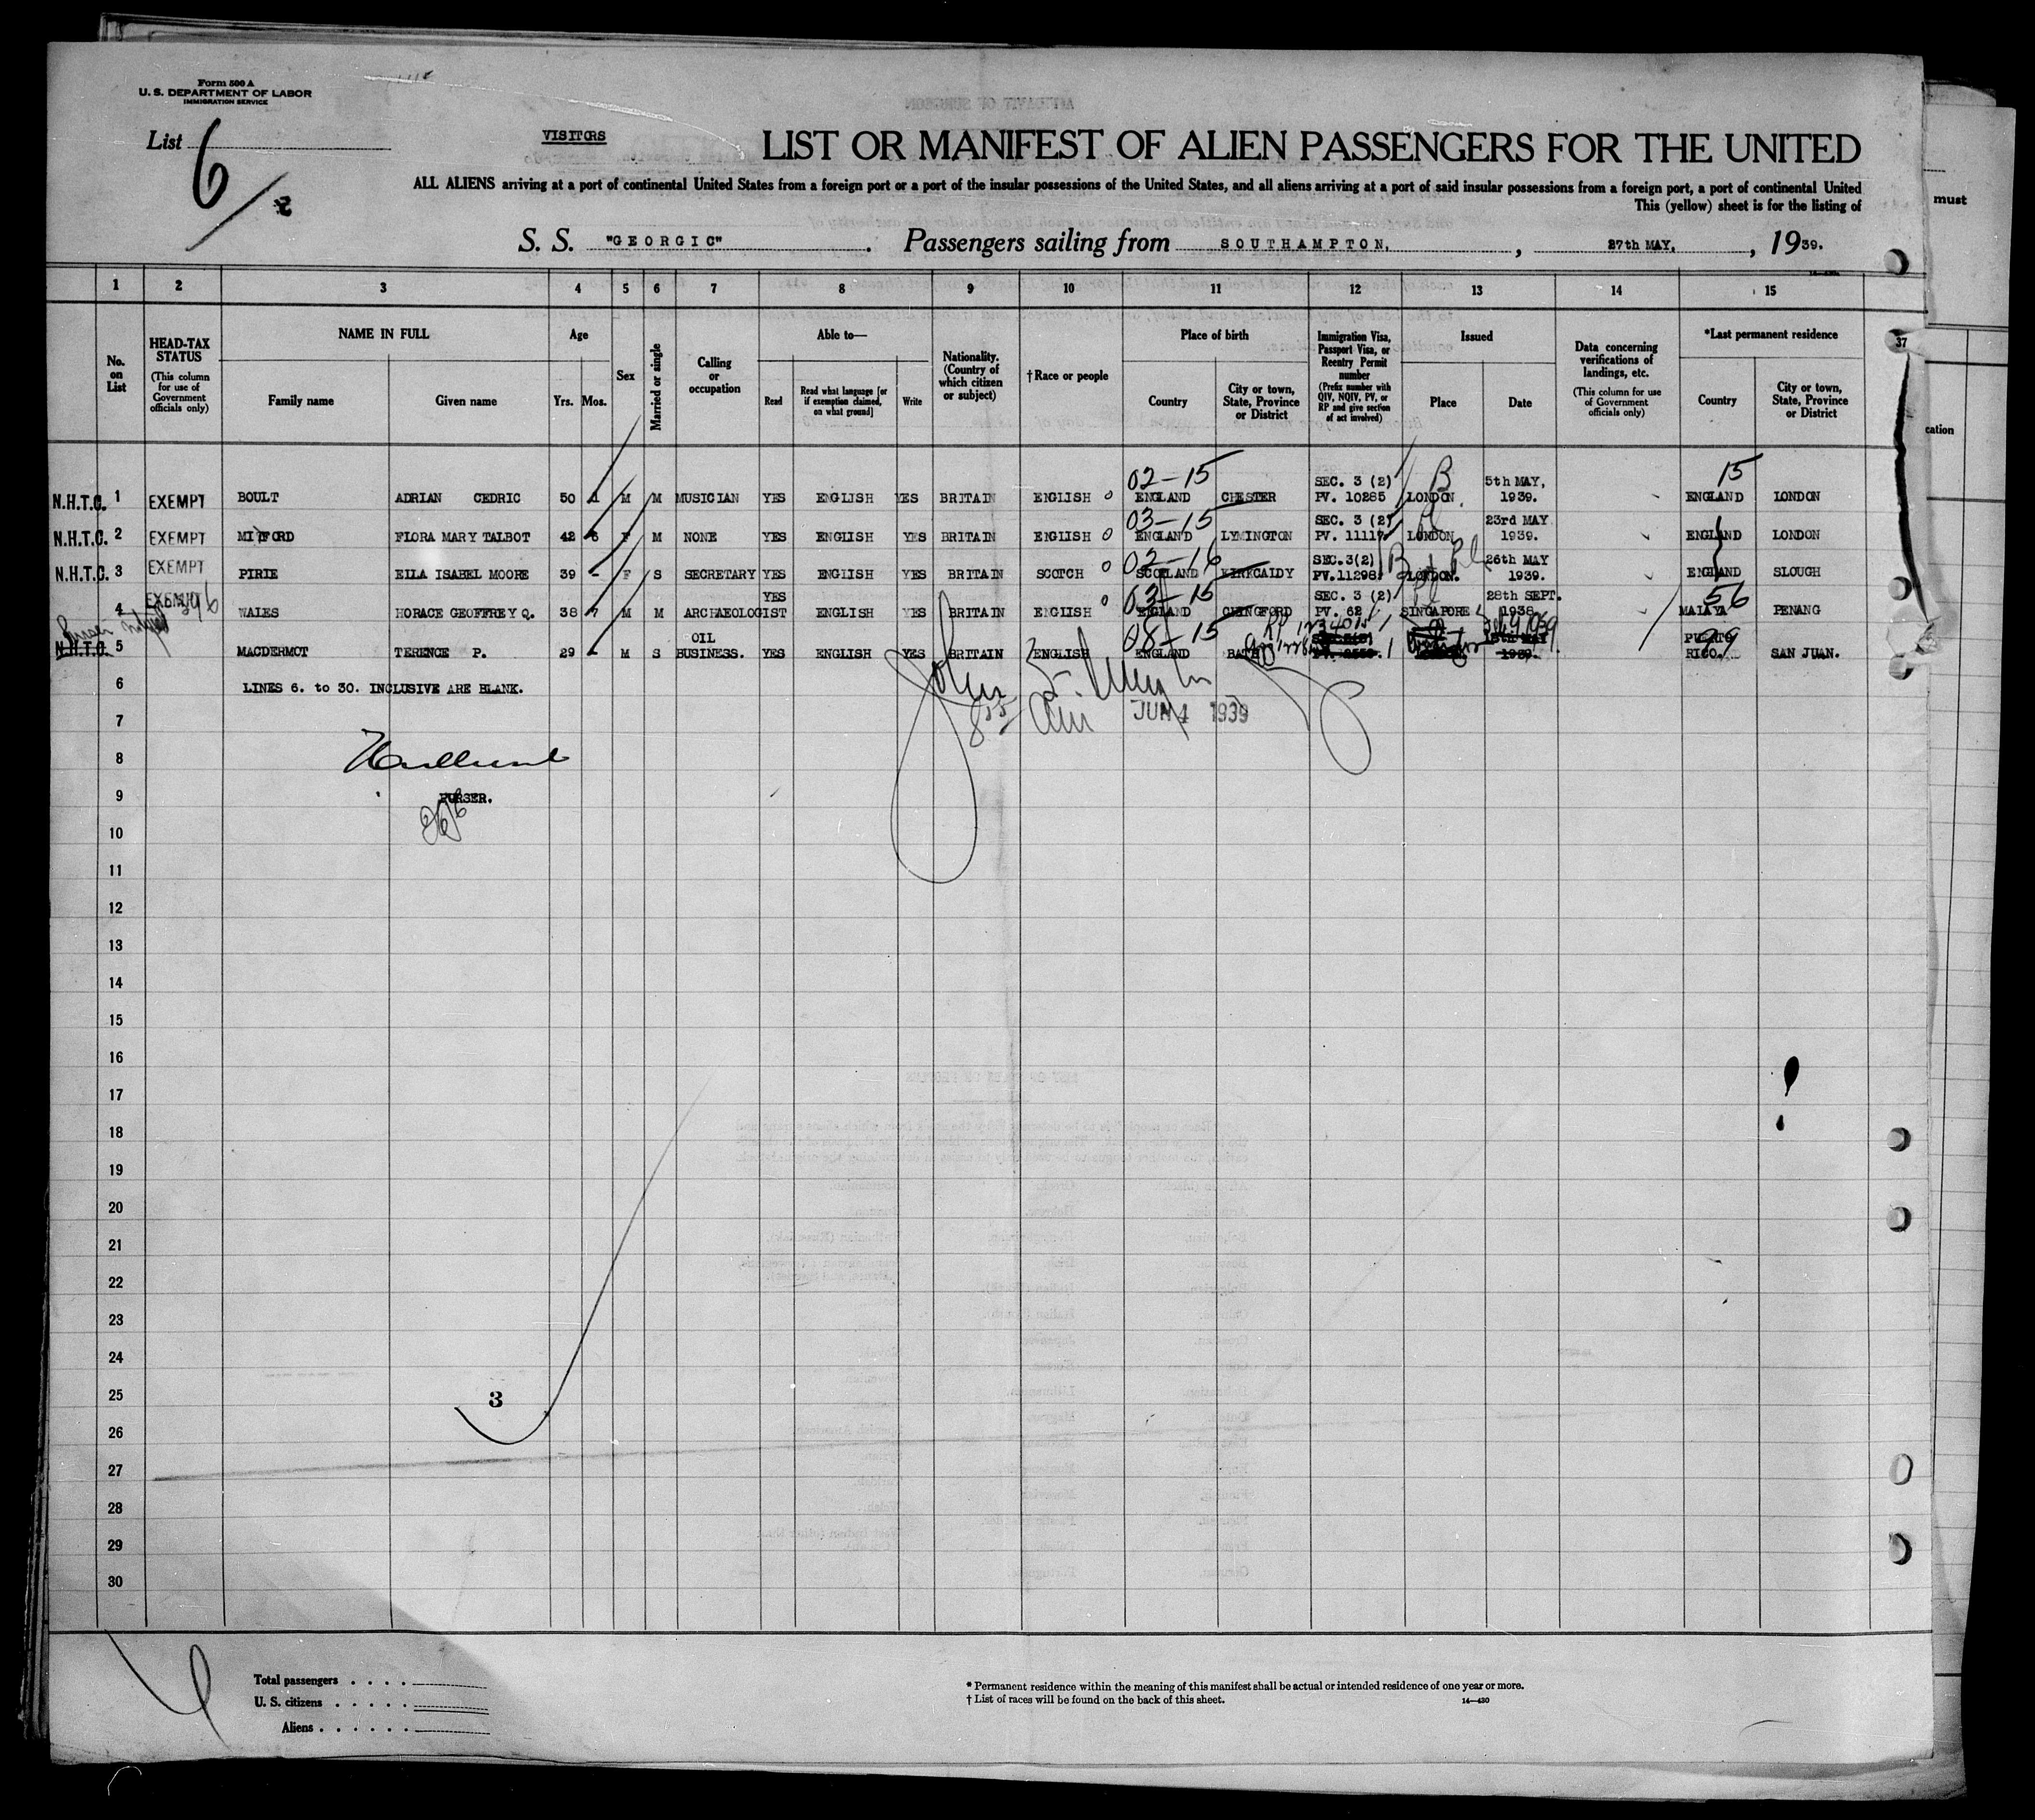 Form 500 A
U. S. DEPARTMENT OF LABOR
IMMIGRATION SERVICE
List 6
VISITORS
LIST OR MANIFEST OF ALIEN PASSENGERS FOR THE UNITED
ALL ALIENS arriving at a port of continental United States from a foreign port or a port of the insular possessions of the United States, and all aliens arriving at a port of said insular possessions from a foreign port, a port of continental United
This (yellow) sheet is for the listing of
must
S. S. "GEORGIC". Passengers sailing from SOUTHAMPTON, , 27th MAY, , 1939.
1 2 3 4 5 6 7 8 9 10 11 12 13 14 15
No. on List
HEAD-TAX STATUS (This column for use of Government officials only)
NAME IN FULL
Family name Given name
Age
Yrs. Mos.
Sex
Married or single
Calling or occupation
Able to—
Read Read what language [or if exemption claimed, on what ground] Write
Nationality. (Country of which citizen or subject)
†Race or people
Place of birth
Country City or town, State, Province or District
Immigration Visa, Passport Visa, or Reentry Permit number (Prefix number with QIV, NQIV, PV, or RP and give section of act involved)
Issued
Place Date
Data concerning verifications of landings, etc. (This column for use of Government officials only)
*Last permanent residence
Country City or town, State, Province or District
37
cation
02-15 SEC. 3 (2) B 5th MAY, 15
N.H.T.C. 1 EXEMPT BOULT ADRIAN CEDRIC 50 1 M M MUSICIAN YES ENGLISH YES BRITAIN ENGLISH ENGLAND CHESTER PV. 10285 LONDON. 1939. ENGLAND LONDON
03-15 SEC. 3 (2) 23rd MAY
N.H.T.C. 2 EXEMPT MITFORD FLORA MARY TALBOT 42 5 F M NONE YES ENGLISH YES BRITAIN ENGLISH ENGLAND LYMINGTON PV. 11117 LONDON 1939. ENGLAND LONDON
02-16 SEC.3(2) B 26th MAY
N.H.T.C. 3 EXEMPT PIRIE EILA ISABEL MOORE 39 - F S SECRETARY YES ENGLISH YES BRITAIN SCOTCH SCOTLAND KIRKCAIDY PV.11298 LONDON. 1939. ENGLAND SLOUGH
YES 03-15 SEC. 3 (2) 28th SEPT. 56
4 EXEMPT WALES HORACE GEOFFREY Q. 38 7 M M ARCHAEOLOGIST ENGLISH YES BRITAIN ENGLISH ENGLAND CHINGFORD PV. 62 SINGAPORE 1938 MALAYA PENANG
OIL 08-15 PUERTO 99
N.H.T.C. 5 MACDERMOT TERENCE P. 29 - M S BUSINESS. YES ENGLISH YES BRITAIN ENGLISH ENGLAND BATH 1939. RICO. SAN JUAN.
6 LINES 6. to 30. INCLUSIVE ARE BLANK.
7 JUN 4 1939
8
9 PURSER.
10
11
12
13
14
15
16
17
18
19
20
21
22
23
24
25 3
26
27
28
29
30
Total passengers . . . .
U. S. citizens . . . . .
Aliens . . . . . .
* Permanent residence within the meaning of this manifest shall be actual or intended residence of one year or more.
† List of races will be found on the back of this sheet. 14—430